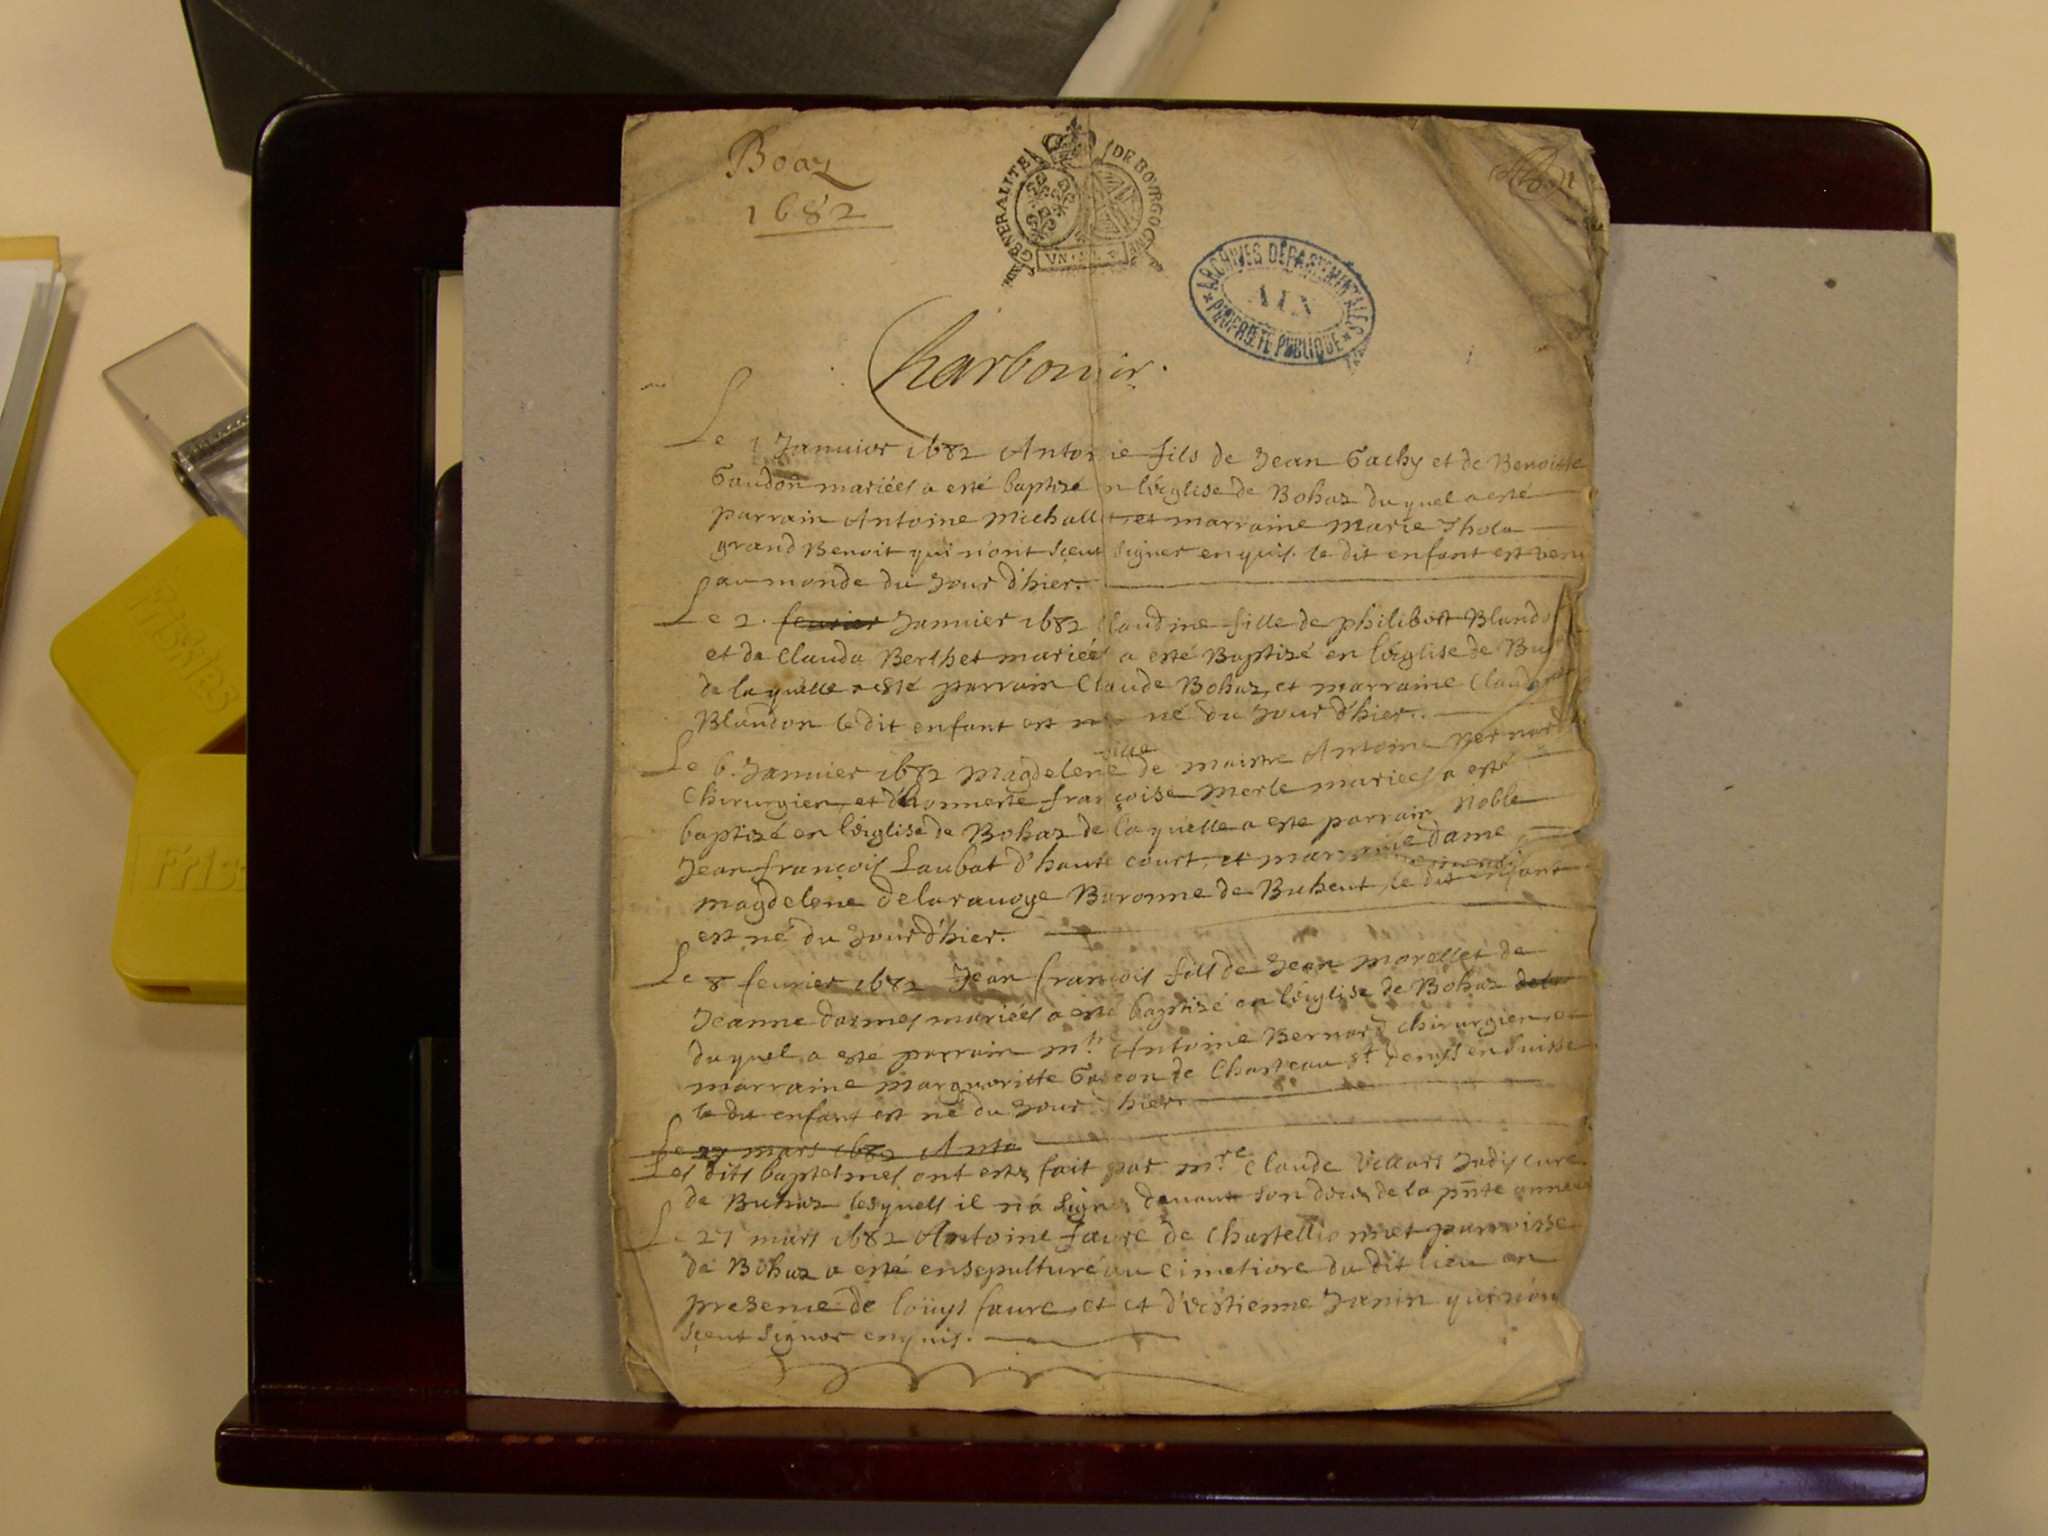 Boaz
1682
GENERALITE DE BOVRGOGNE
VN
ARCHIVES DÉPARTEMENTALES
AIN
PROPRIÉTÉ PUBLIQUE
Charbonier.
Le 1 Januier 1682 Antoine fils de Jean Gachy et de Benoiste
Gaudon mariées a esté baptizé en léglise de Bohaz duquel a esté
parrain Antoine Michallet et marraine Marie
grand Benoit qui n'ont sçeut signer enquis. le dit enfant est venu
au monde du Jour d'hier.
Le 2. feurier Januier 1682 Claudine fille de philibert Blandon
et de Clauda Berthet mariées a esté Baptizé en léglise de
de laquelle a esté parrain Claude Bohaz, et marraine
Blandon le dit enfant est né du Jour d'hier.
Le 6. Januier 1682 Magdelene fille de maistre Antoine Bernard
Chirurgien et d'honneste françoise Merle mariées a esté
baptizé en léglise de Bohaz de laquelle a este parrain Noble
Jean françois Laubat d'haute court, et marraine dame
magdelene delarauoye Baronne de Buhent le dit enfant
est né du Jour d'hier.
Le 8 feurier 1682 Jean françois fils de Jean Morel et de
Jeanne darmes mariées a esté baptizé en léglise de Bohaz dela
duquel a esté parrain mtre Antoine Bernard chirurgien et
marraine margueritte de Chasteau st denys en suisse
le dit enfant est né du Jour d'hier.
Le 27 mars 1682 Anto
Les dits baptesmes ont estez fait par mre Claude Villars Jadis curé
de Buhaz lesquels il n'a signez deuant son decez de la pñte année
Le 27 mars 1682 Antoine faure de Chastellionnet parroisse
de Bohaz a esté ensepulturé au cimetiere du dit lieu en
presence de loüys faure, et et d'éstienne Janin qui n'on
sçeut signer enquis.